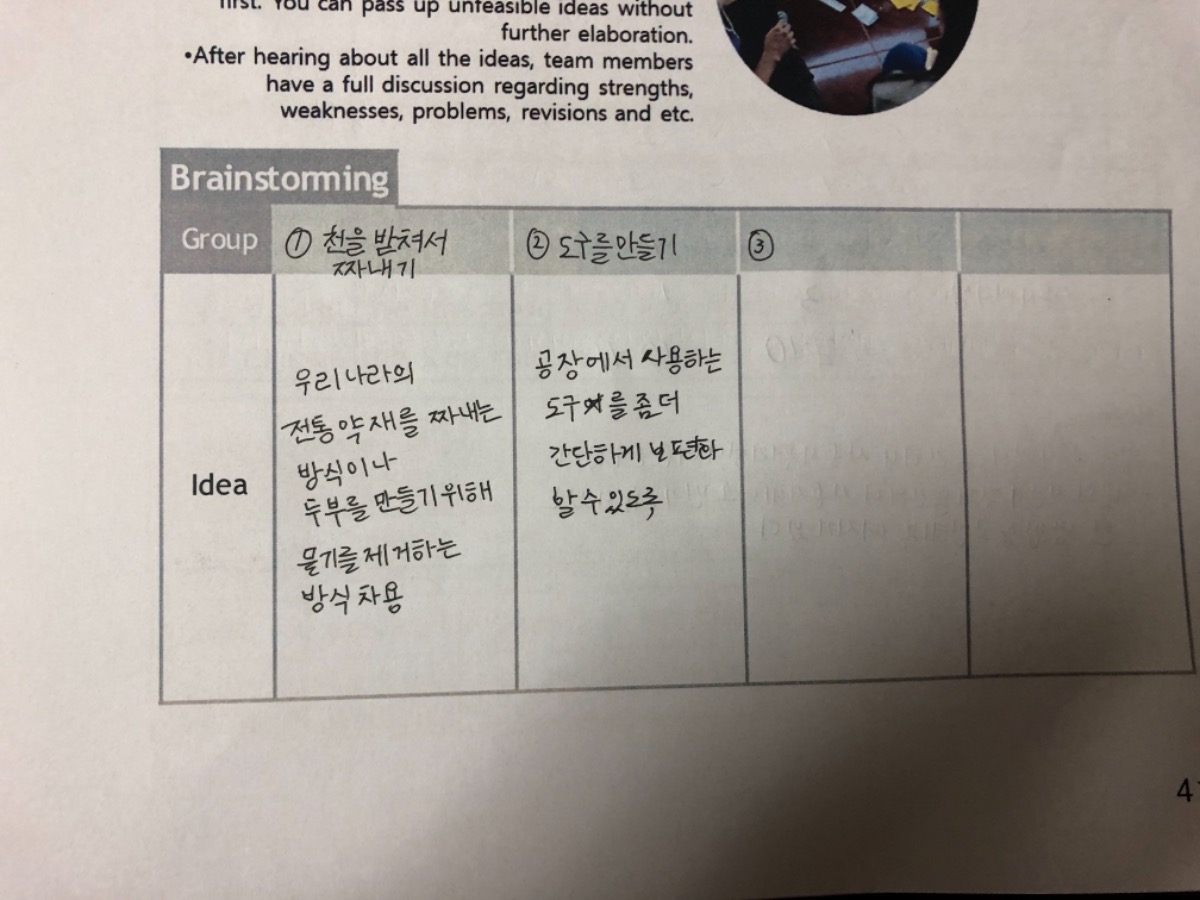 first. You can pass up unfeasible ideas without
further elaboration.
•After hearing about all the ideas, team members
have a full discussion regarding strengths,
weaknesses, problems, revisions and etc.
Brainstorming
Group
① 천을 받쳐서
짜내기
② 도구를 만들기
③
Idea
우리나라의
전통약재를 짜내는
방식이나
두부를 만들기위해
물기를 제거하는
방식 차용
공장에서 사용하는
도구를 좀 더
간단하게 보편화
할 수 있도록